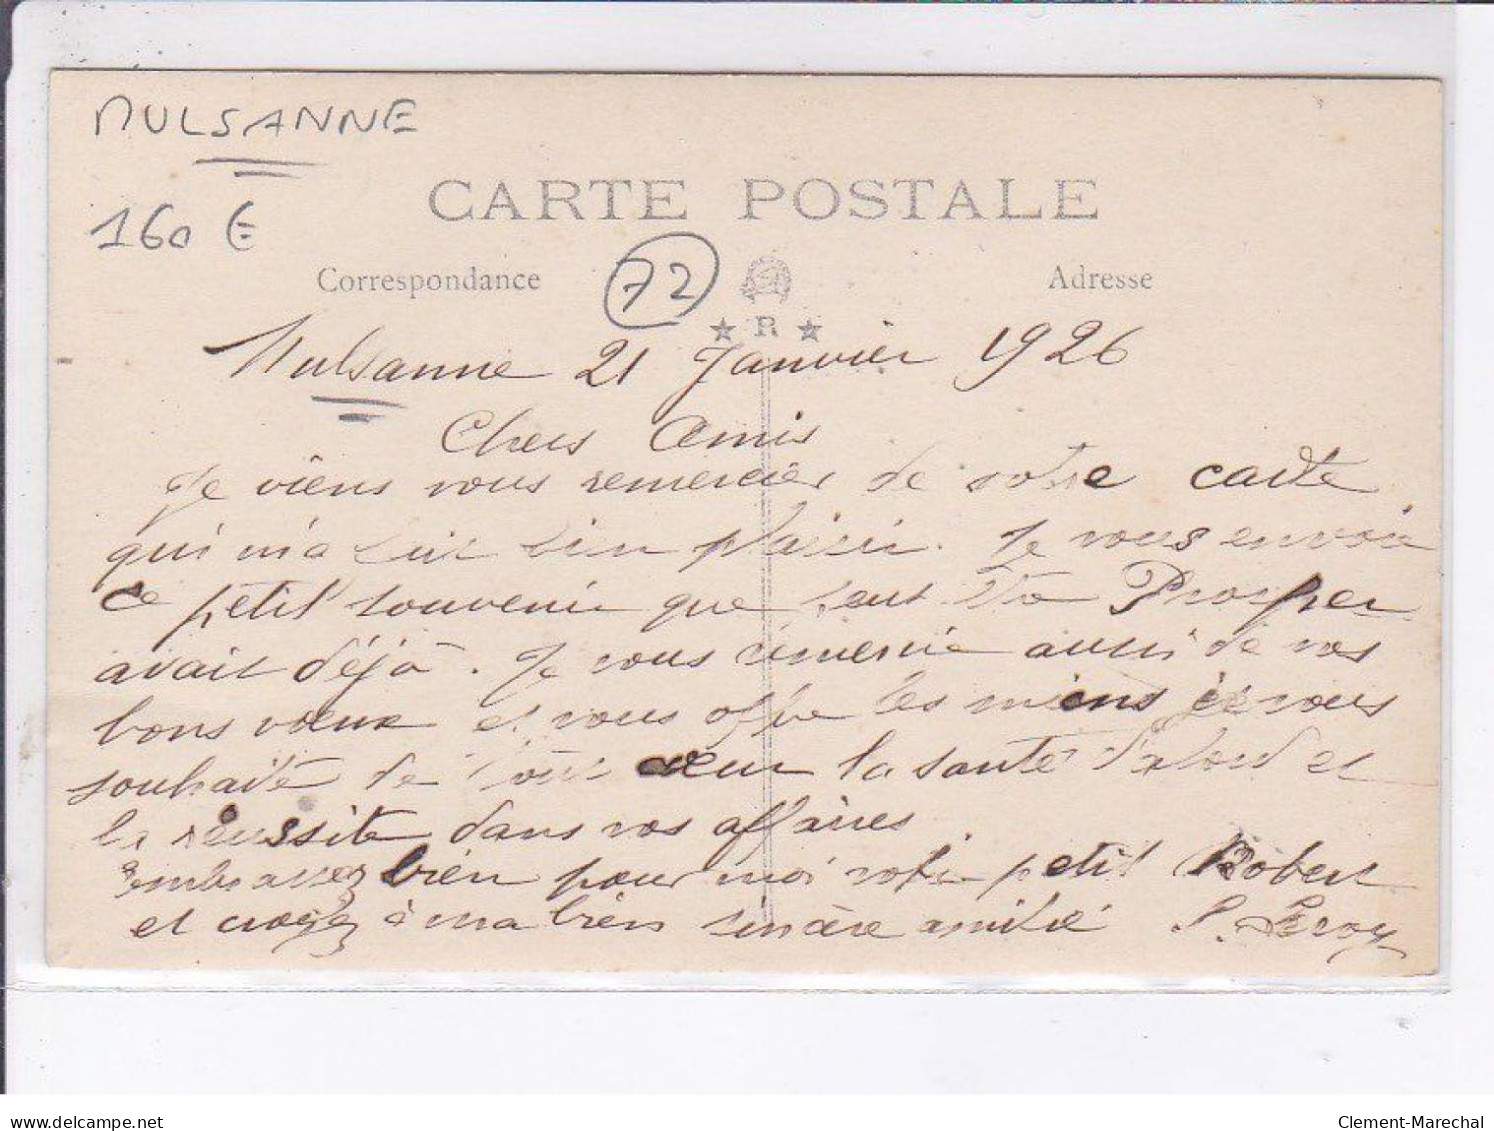 MULSANNE
CARTE POSTALE
160 €
Correspondance 72 Adresse
★ R ★
Mulsanne 21 Janvier 1926
Chers Amis
Je viens vous remercier de votre carte
qui m'a fait bien plaisir. Je vous envoie
ce petit souvenir que Prosper
avait déjà. Je vous remercie aussi de vos
bons vœux et vous offre les miens et vous
souhaite de tout cœur la santé d'abord et
la réussite dans vos affaires
embrassez bien pour moi votre petit Robert
et croyez à ma bien sincère amitié P. Leroy
delcampe.net
Clement-Marechal